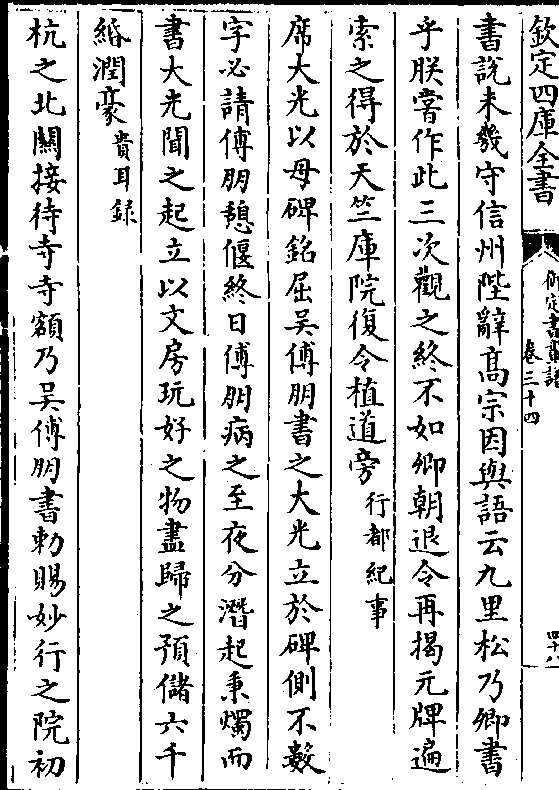 欽定四庫全書
御定書畫譜
卷三十四
四十八
書説未幾守信州陛辭髙宗因與語云九里松乃卿書
乎朕嘗作此三次觀之終不如卿朝退令再揭元牌遍
索之得於天竺庫院復令植道旁 行都紀事
席大光以母碑銘屈吳傅朋書之大光立於碑側不數
字必請傅朋憩偃終日傅朋病之至夜分潛起秉燭而
書大光聞之起立以文房玩好之物盡歸之預儲六千
緡潤豪 貴耳録
杭之北關接待寺寺額乃吳傅朋書勅賜妙行之院初